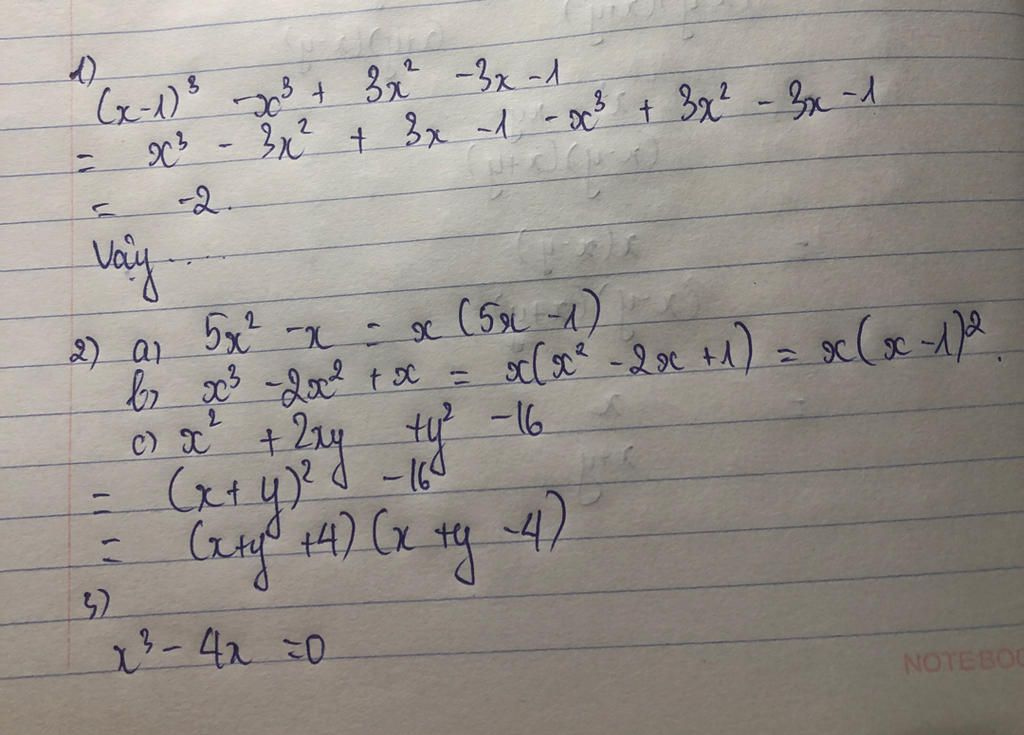 1)
(x-1)³ -x³ + 3x² -3x -1
= x³ - 3x² + 3x -1 -x³ + 3x² - 3x -1
= -2.
Vậy .....
2) a) 5x² -x = x (5x -1)
b) x³ -2x² + x = x(x² -2x +1) = x(x -1)².
c) x² + 2xy +y² -16
= (x+ y)² -16
= (x+y +4) (x +y -4)
3)
x³ - 4x =0
NOTEBOO